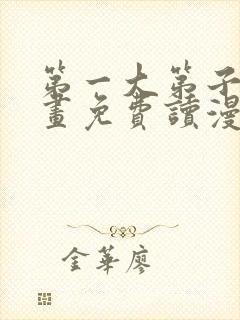 第一大弟子漫
畫免費讀漫
金華廖